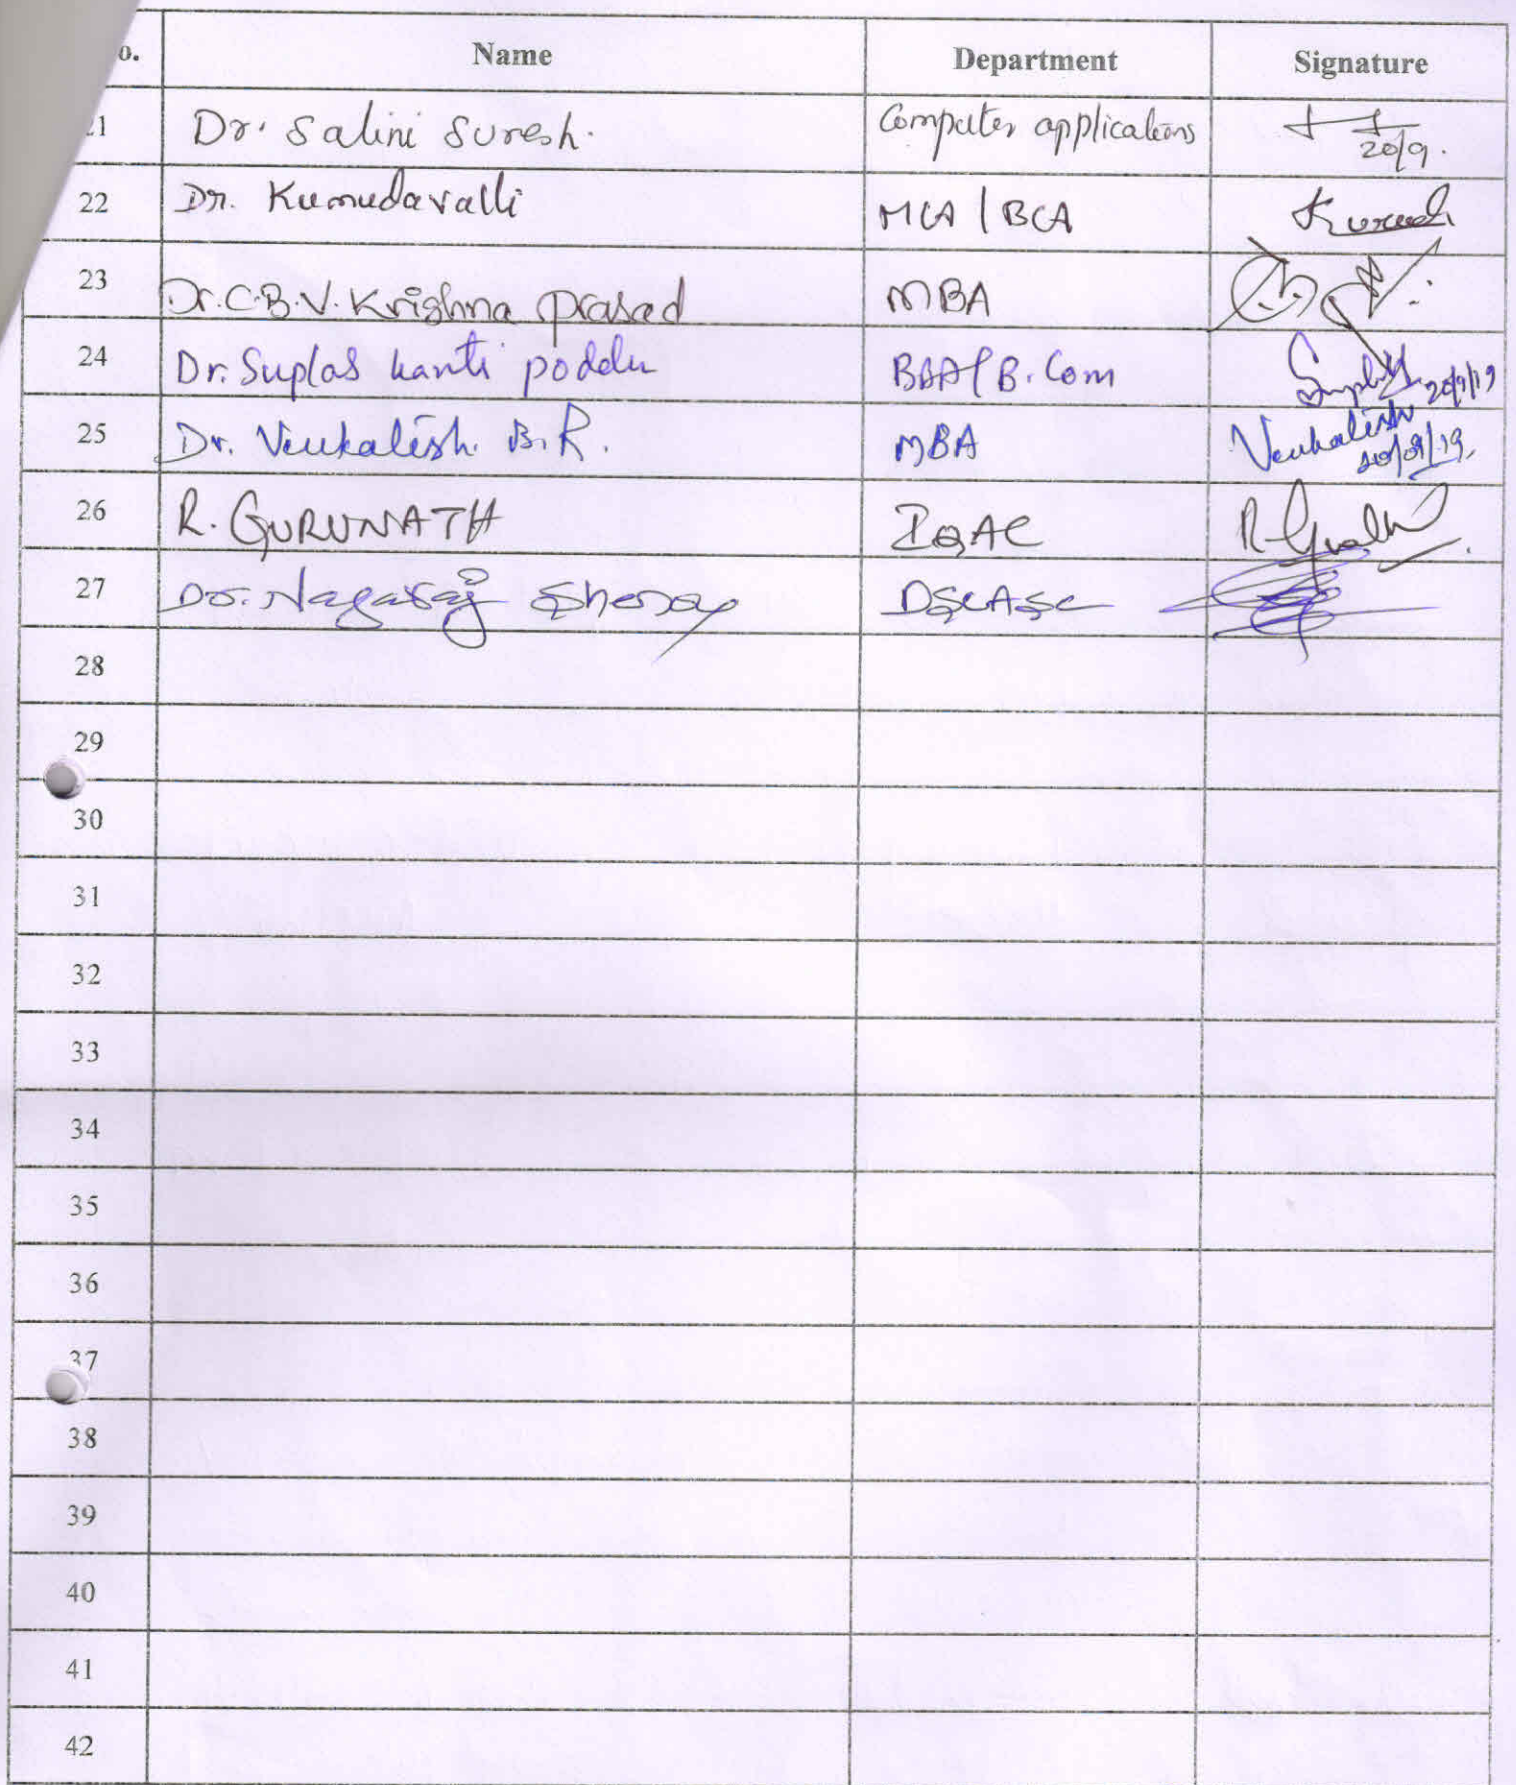 o. Name Department Signature
21 Dr. Salini Suresh. Computer applications 20/9.
22 Dr. Kumudavalli MCA / BCA Kumud
23 Dr. C.B.V. Krishna prasad MBA
24 Dr. Suplas kanti poddar BBA / B.Com 20/9/19
25 Dr. Venkatesh. B.R. MBA Venkatesh
20/09/19.
26 R. GURUNATH IQAC
27 Dr. Nagaraj Shenoy DSCASC
28
29
30
31
32
33
34
35
36
37
38
39
40
41
42